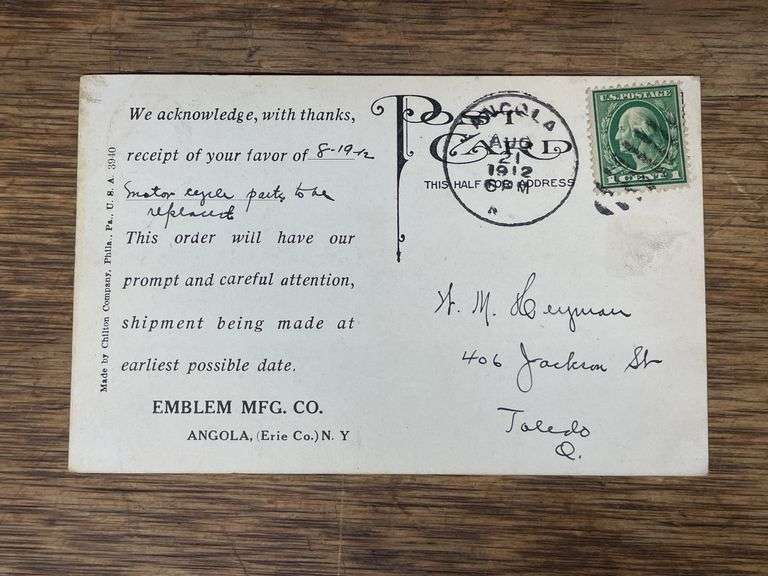 We acknowledge, with thanks,
receipt of your favor of 8-19-12
motor cycle parts to be
replaced
This order will have our
prompt and careful attention,
shipment being made at
earliest possible date.
EMBLEM MFG. CO.
ANGOLA, (Erie Co.) N. Y
Made by Chilton Company, Phila., Pa., U. S. A. 3940
POST CARD
THIS HALF FOR ADDRESS
ANGOLA
AUG
21
1912
6 PM
N
U.S. POSTAGE
1 CENT 1
W. M. Heyman
406 Jackson St
Toledo
O.